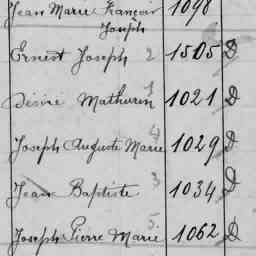 Jean Marie François 1098
Joseph
Ernest Joseph 2 1505 D
Désiré Mathurin 1 1021 D
Joseph Auguste Marie 4 1029 D
Jean Baptiste 3 1034 D
Joseph Pierre Marie 5 1062 D